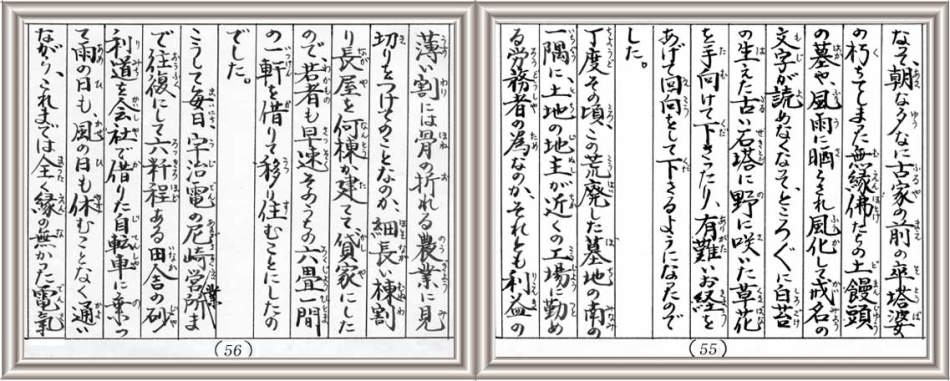 なぞ、朝な夕なに古家の前の卒塔婆
の朽ちてしまった無縁佛たちの土饅頭
の墓や、風雨に晒らされ風化して戒名の
文字が読めなくなぞ、ところ〴〵に白苔
の生えた古い石塔に野に咲いた草花
を手向けて下さったり、有難いお経を
あげて回向をして下さるようになったので
した。
丁度その頃、この荒廃した墓地の南の
一隅に、土地の地主が近くの工場に勤め
る労務者の為なのか、それとも利益の
(55)
薄い割には骨の折れる農業に見
切りをつけてのことなのか、細長い棟割
り長屋を何棟か建てて、貸家にした
ので、若者も早速そのうちの六畳一間
の一軒を借りて移り住むことにしたの
でした。
こうして毎日、宇治電の尼崎営業所ま
で往復にして六粁程ある田舎の砂
利道を会社で借りた自転車に乗っ
て雨の日も、風の日も休むことなく通い
ながら、これまでは全く縁の無かった電氣
(56)